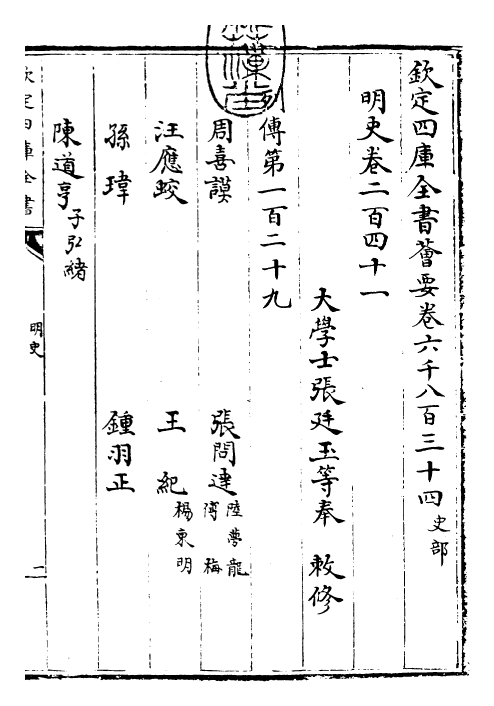 欽定四庫全書薈要卷六千八百三十四 史部
明史卷二百四十一
大學士張廷玉等奉 敕修
列傳第一百二十九
周喜謨 張問達 陸夢龍 傅梅
汪應蛟 王紀 楊東明
孫瑋 鍾羽正
陳道亨 子弘緒
欽定四庫全書
明史